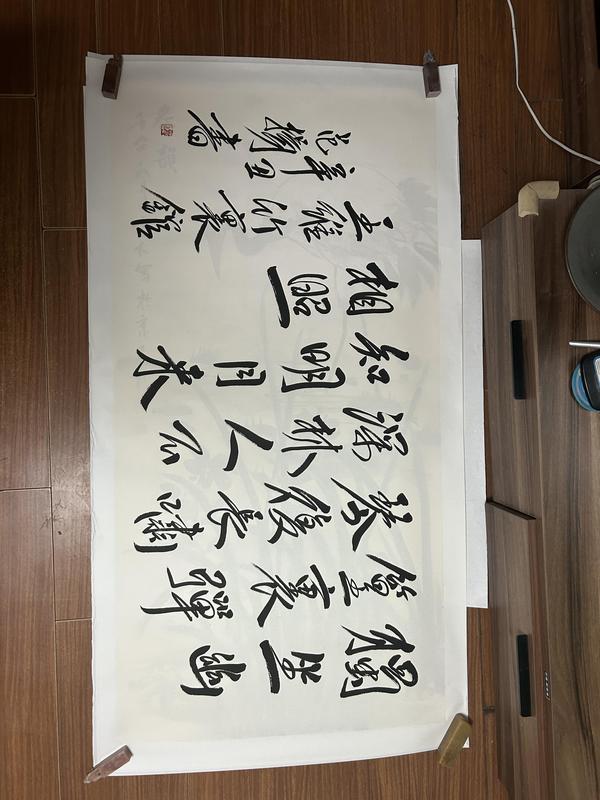 獨坐幽
篁裏彈
琴復長嘯
深林人不
知明月來
相照
王維竹裏館
辛丑
范揚書